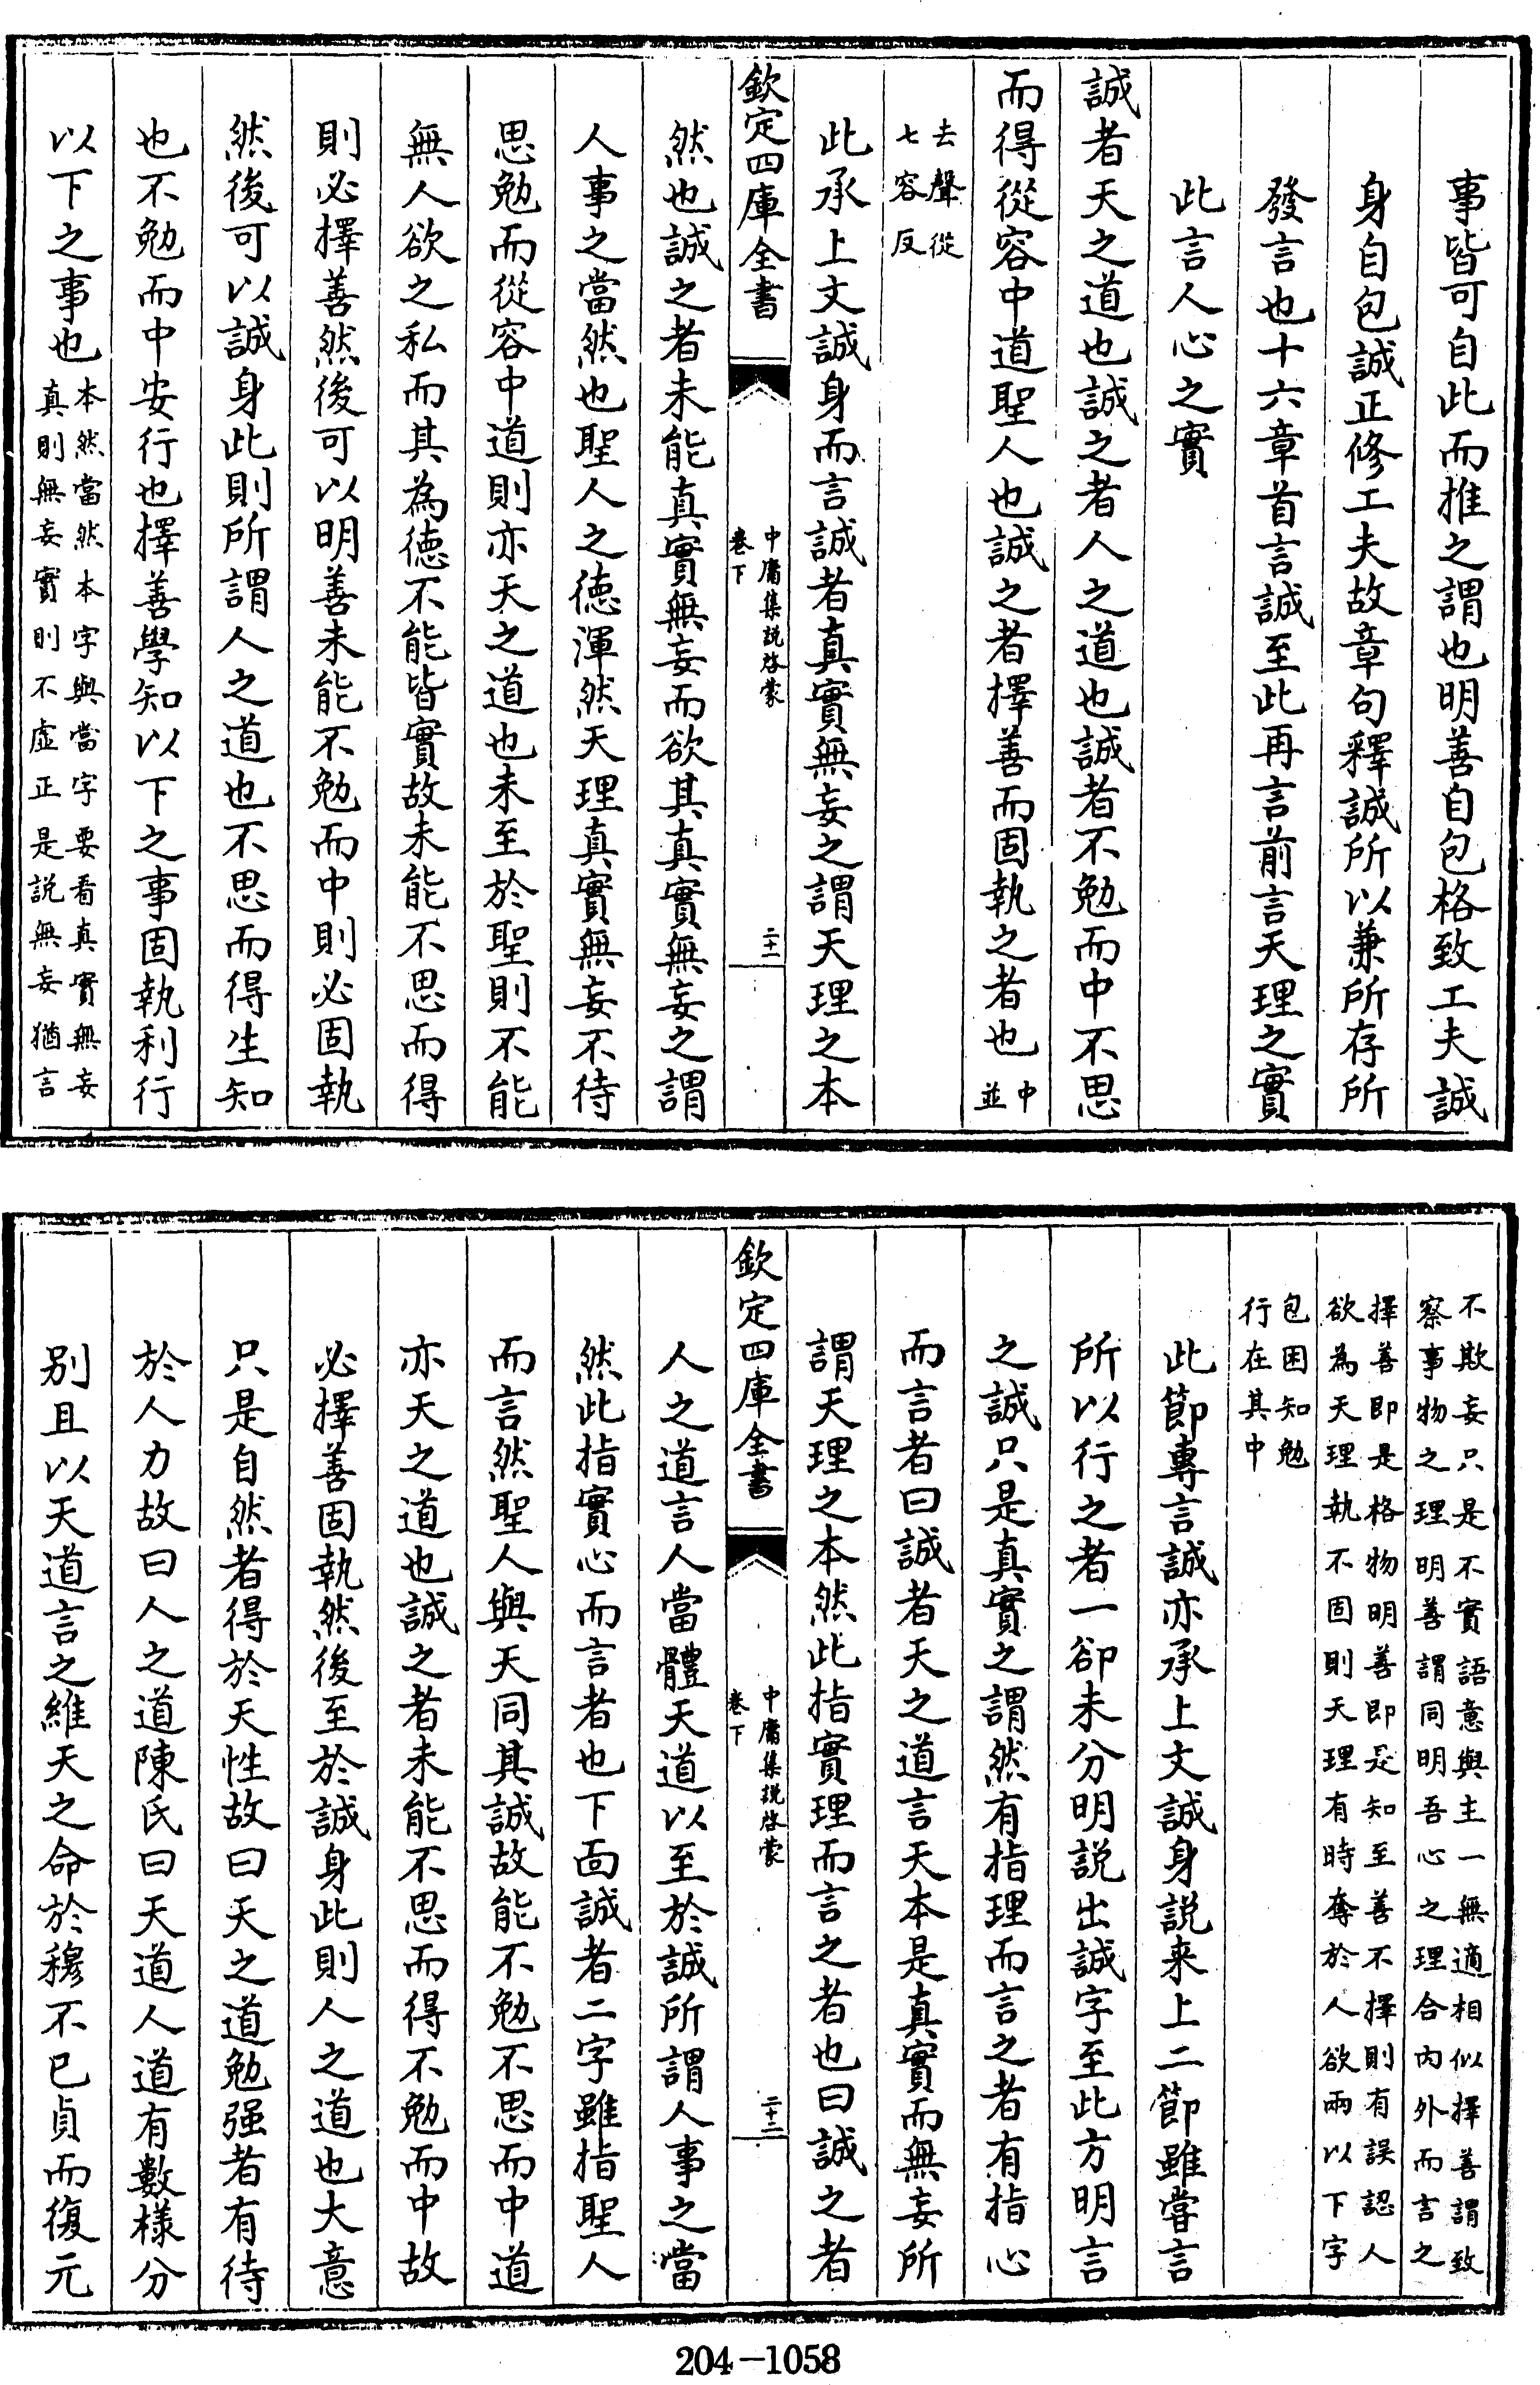 事皆可自此而推之謂也明善自包格致工夫誠
身自包誠正修工夫故章句釋誠所以兼所存所
發言也十六章首言誠至此再言前言天理之實
此言人心之實
誠者天之道也誠之者人之道也誠者不勉而中不思
而得從容中道聖人也誠之者擇善而固執之者也中
並
去聲從
七容反
此承上文誠身而言誠者真實無妄之謂天理之本
欽定四庫全書
中庸集說啓蒙
卷下
二十一
然也誠之者未能真實無妄而欲其真實無妄之謂
人事之當然也聖人之德渾然天理真實無妄不待
思勉而從容中道則亦天之道也未至於聖則不能
無人欲之私而其為德不能皆實故未能不思而得
則必擇善然後可以明善未能不勉而中則必固執
然後可以誠身此則所謂人之道也不思而得生知
也不勉而中安行也擇善學知以下之事固執利行
以下之事也
本然當然本字與當字要看真實無妄
真則無妄實則不虛正是說無妄猶言
不欺妄只是不實語意與主一無適相似擇善謂致
察事物之理明善謂同明吾心之理合內外而言之
擇善即是格物明善即是知至善不擇則有誤認人
欲為天理執不固則天理有時奪於人欲兩以下字
包困知勉
行在其中
此節專言誠亦承上文誠身說来上二節雖嘗言
所以行之者一卻未分明説出誠字至此方明言
之誠只是真實之謂然有指理而言之者有指心
而言者曰誠者天之道言天本是真實而無妄所
謂天理之本然此指實理而言之者也曰誠之者
欽定四庫全書
中庸集說啓蒙
卷下
二十二
人之道言人當體天道以至於誠所謂人事之當
然此指實心而言者也下面誠者二字雖指聖人
而言然聖人與天同其誠故能不勉不思而中道
亦天之道也誠之者未能不思而得不勉而中故
必擇善固執然後至於誠身此則人之道也大意
只是自然者得於天性故曰天之道勉强者有待
於人力故曰人之道陳氏曰天道人道有數樣分
别且以天道言之維天之命於穆不已貞而復元
204-1058